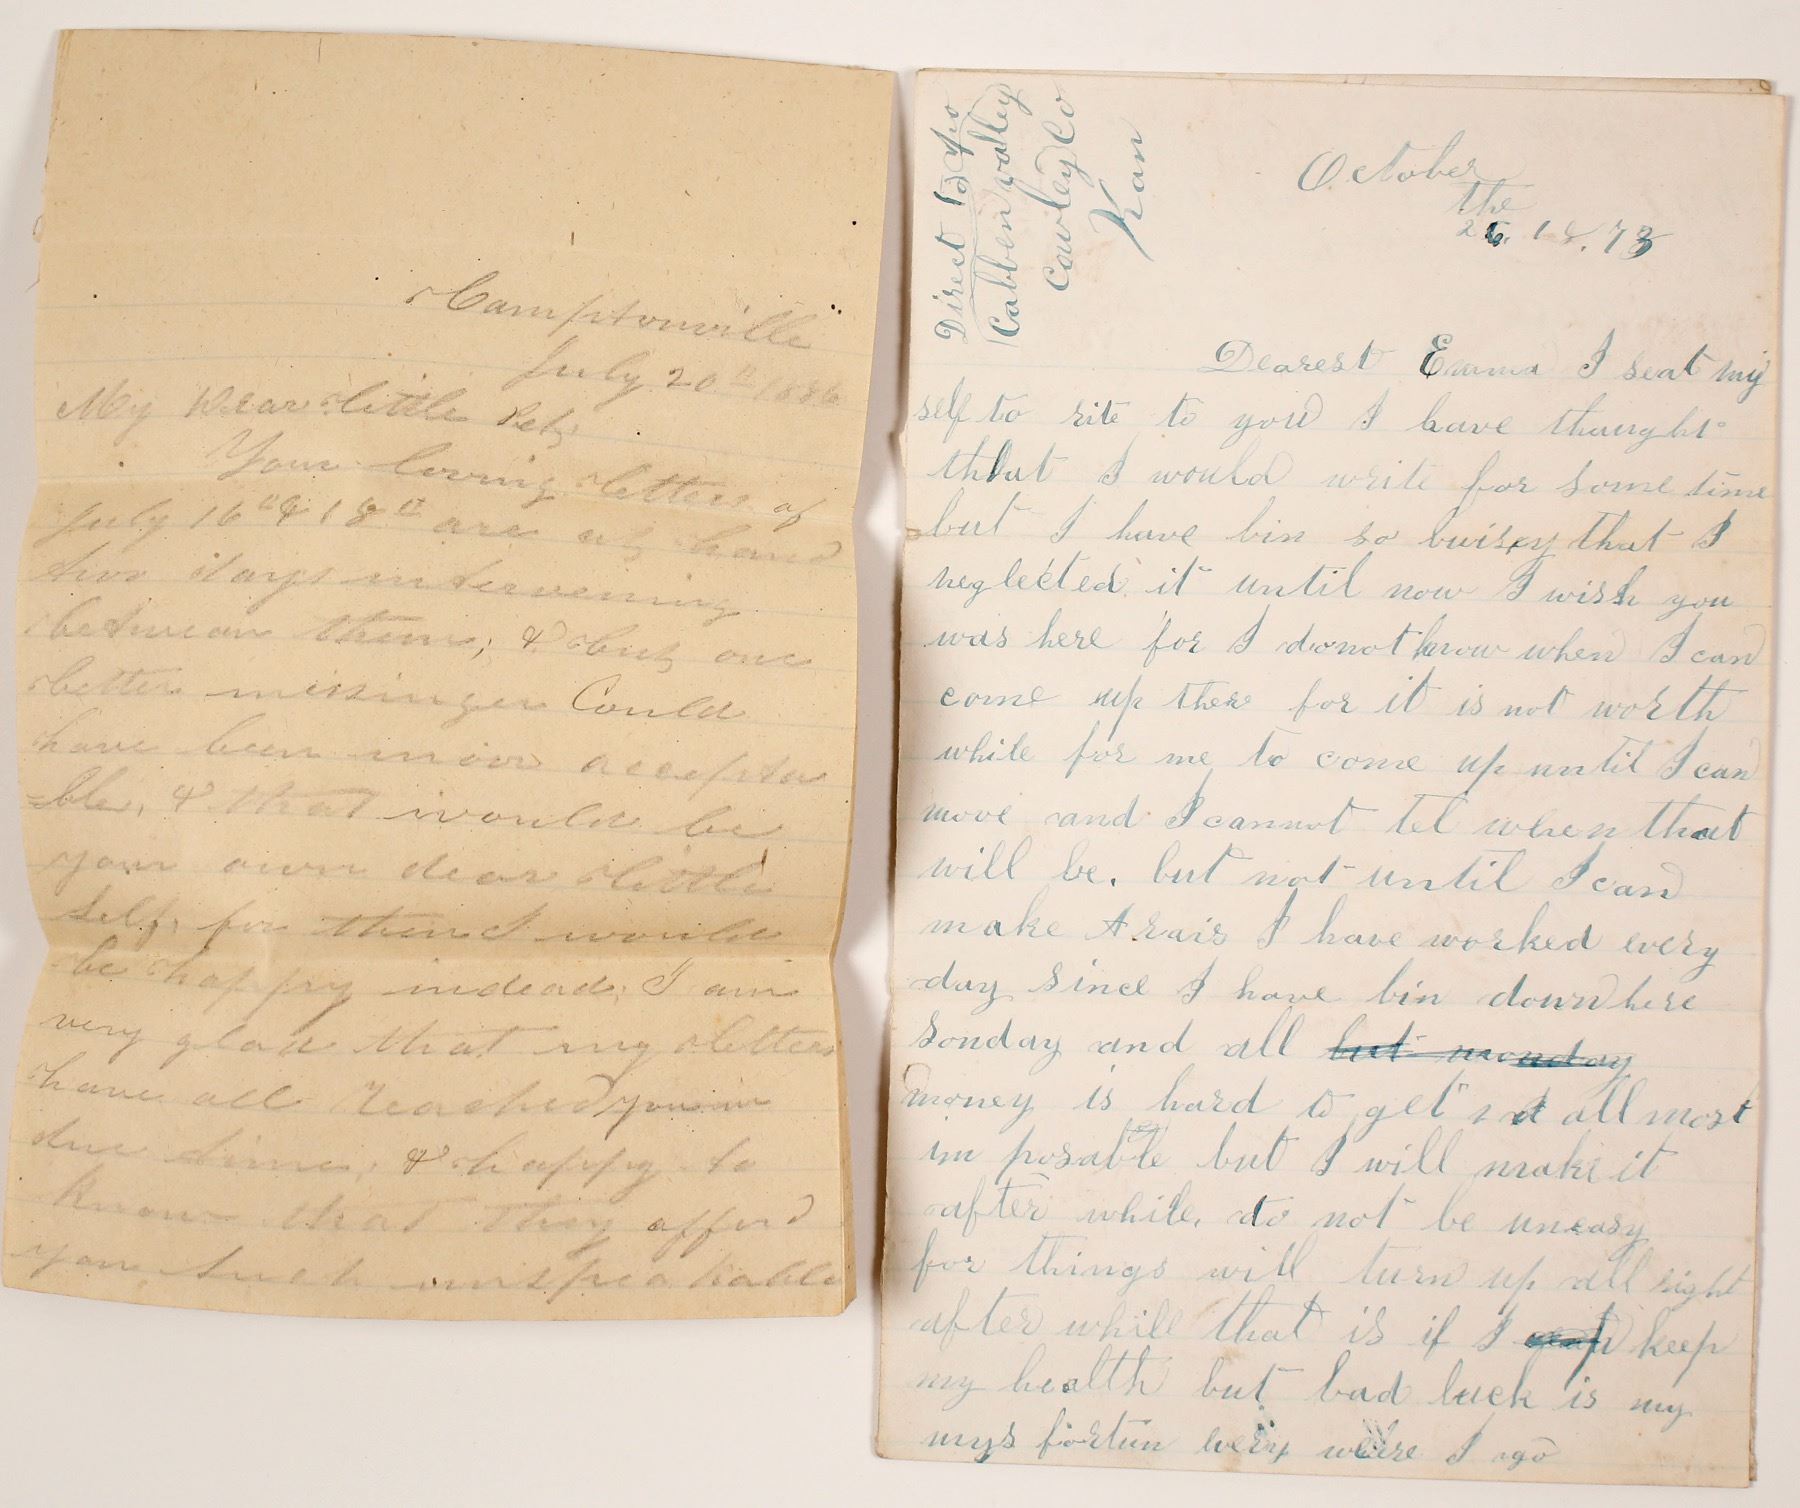 Camptonville
July 20th 1886
My Dear little Pet,
Your loving letters of
July 16th & 18th are at hand
two days intervening
between them; & but one
better messinger Could
have been more accepta
=ble, & that would be
your own dear little
self, for then I would
be happy indead, I am
very glad that my letters
have all reached you in
due time, & happy to
know that they afford
you such unspeakable
Direct to
Cabben valley
Cowley Co
Kan
October
the
26. 18.73
Dearest Emma I seat my
self to rite to you I have thaught
that I would write for some time
but I have bin so buisey that I
neglected it until now I wish you
was here for I do not know when I can
come up there for it is not worth
while for me to come up until I can
move and I cannot tel when that
will be. but not until I can
make A rais I have worked every
day since I have bin down here
sonday and all but monday
money is hard to get at allmost
im posable but I will make it
after while. do not be uneasy
for things will turn up all right
after while that is if I keep
my health but bad luck is my
mys fortun every were I go